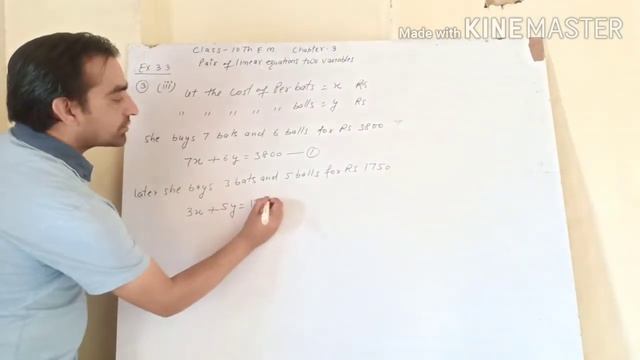 Made with KINEMASTER
Class-10th E.M. Chapter-3
Pair of linear equations two variables
Ex 3.3
③ (iii) Let the cost of Per bats = x Rs
" " " " " balls = y Rs
She buys 7 bats and 6 balls for Rs 3800
7x + 6y = 3800 — ①
Later she buys 3 bats and 5 balls for Rs 1750
3x + 5y = 1